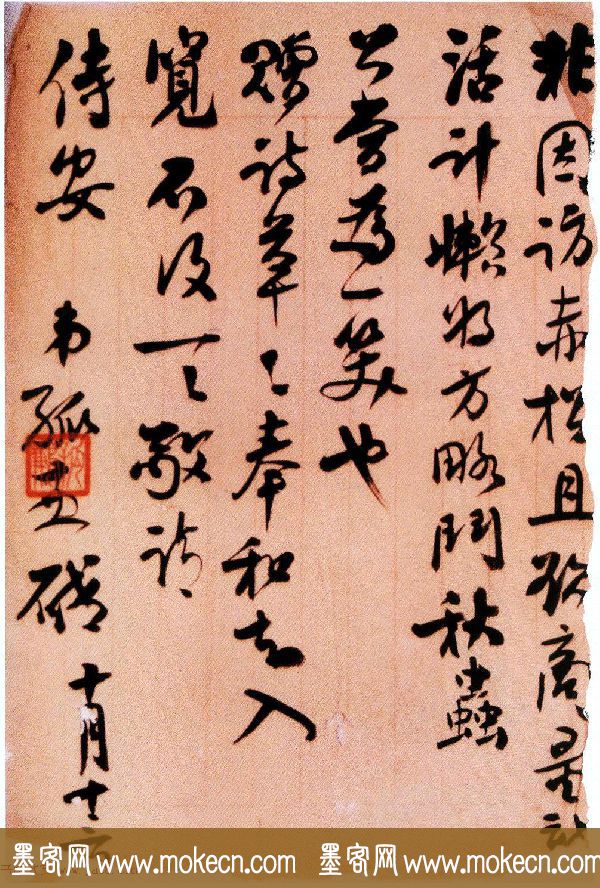 因訪赤松且欲商量
活計懶將方略鬥秋蟲
公當為一笑也
贈詩草々奉和知入
覽不復一一敬請
侍安 弟孤
十月十
墨客网 www.mokecn.com 墨客网 www.mokecn.com